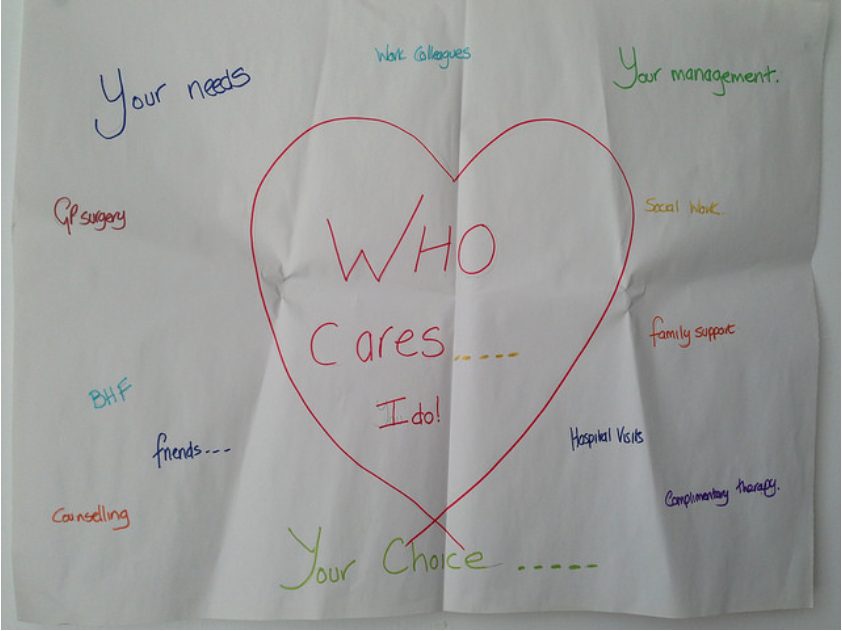 Work Colleagues
Your needs
Your management.
GP surgery
Social Work.
WHO
Cares.....
I do!
family support
BHF
friends---
Hospital Visits
Complimentary therapy.
Counselling
Your Choice .....